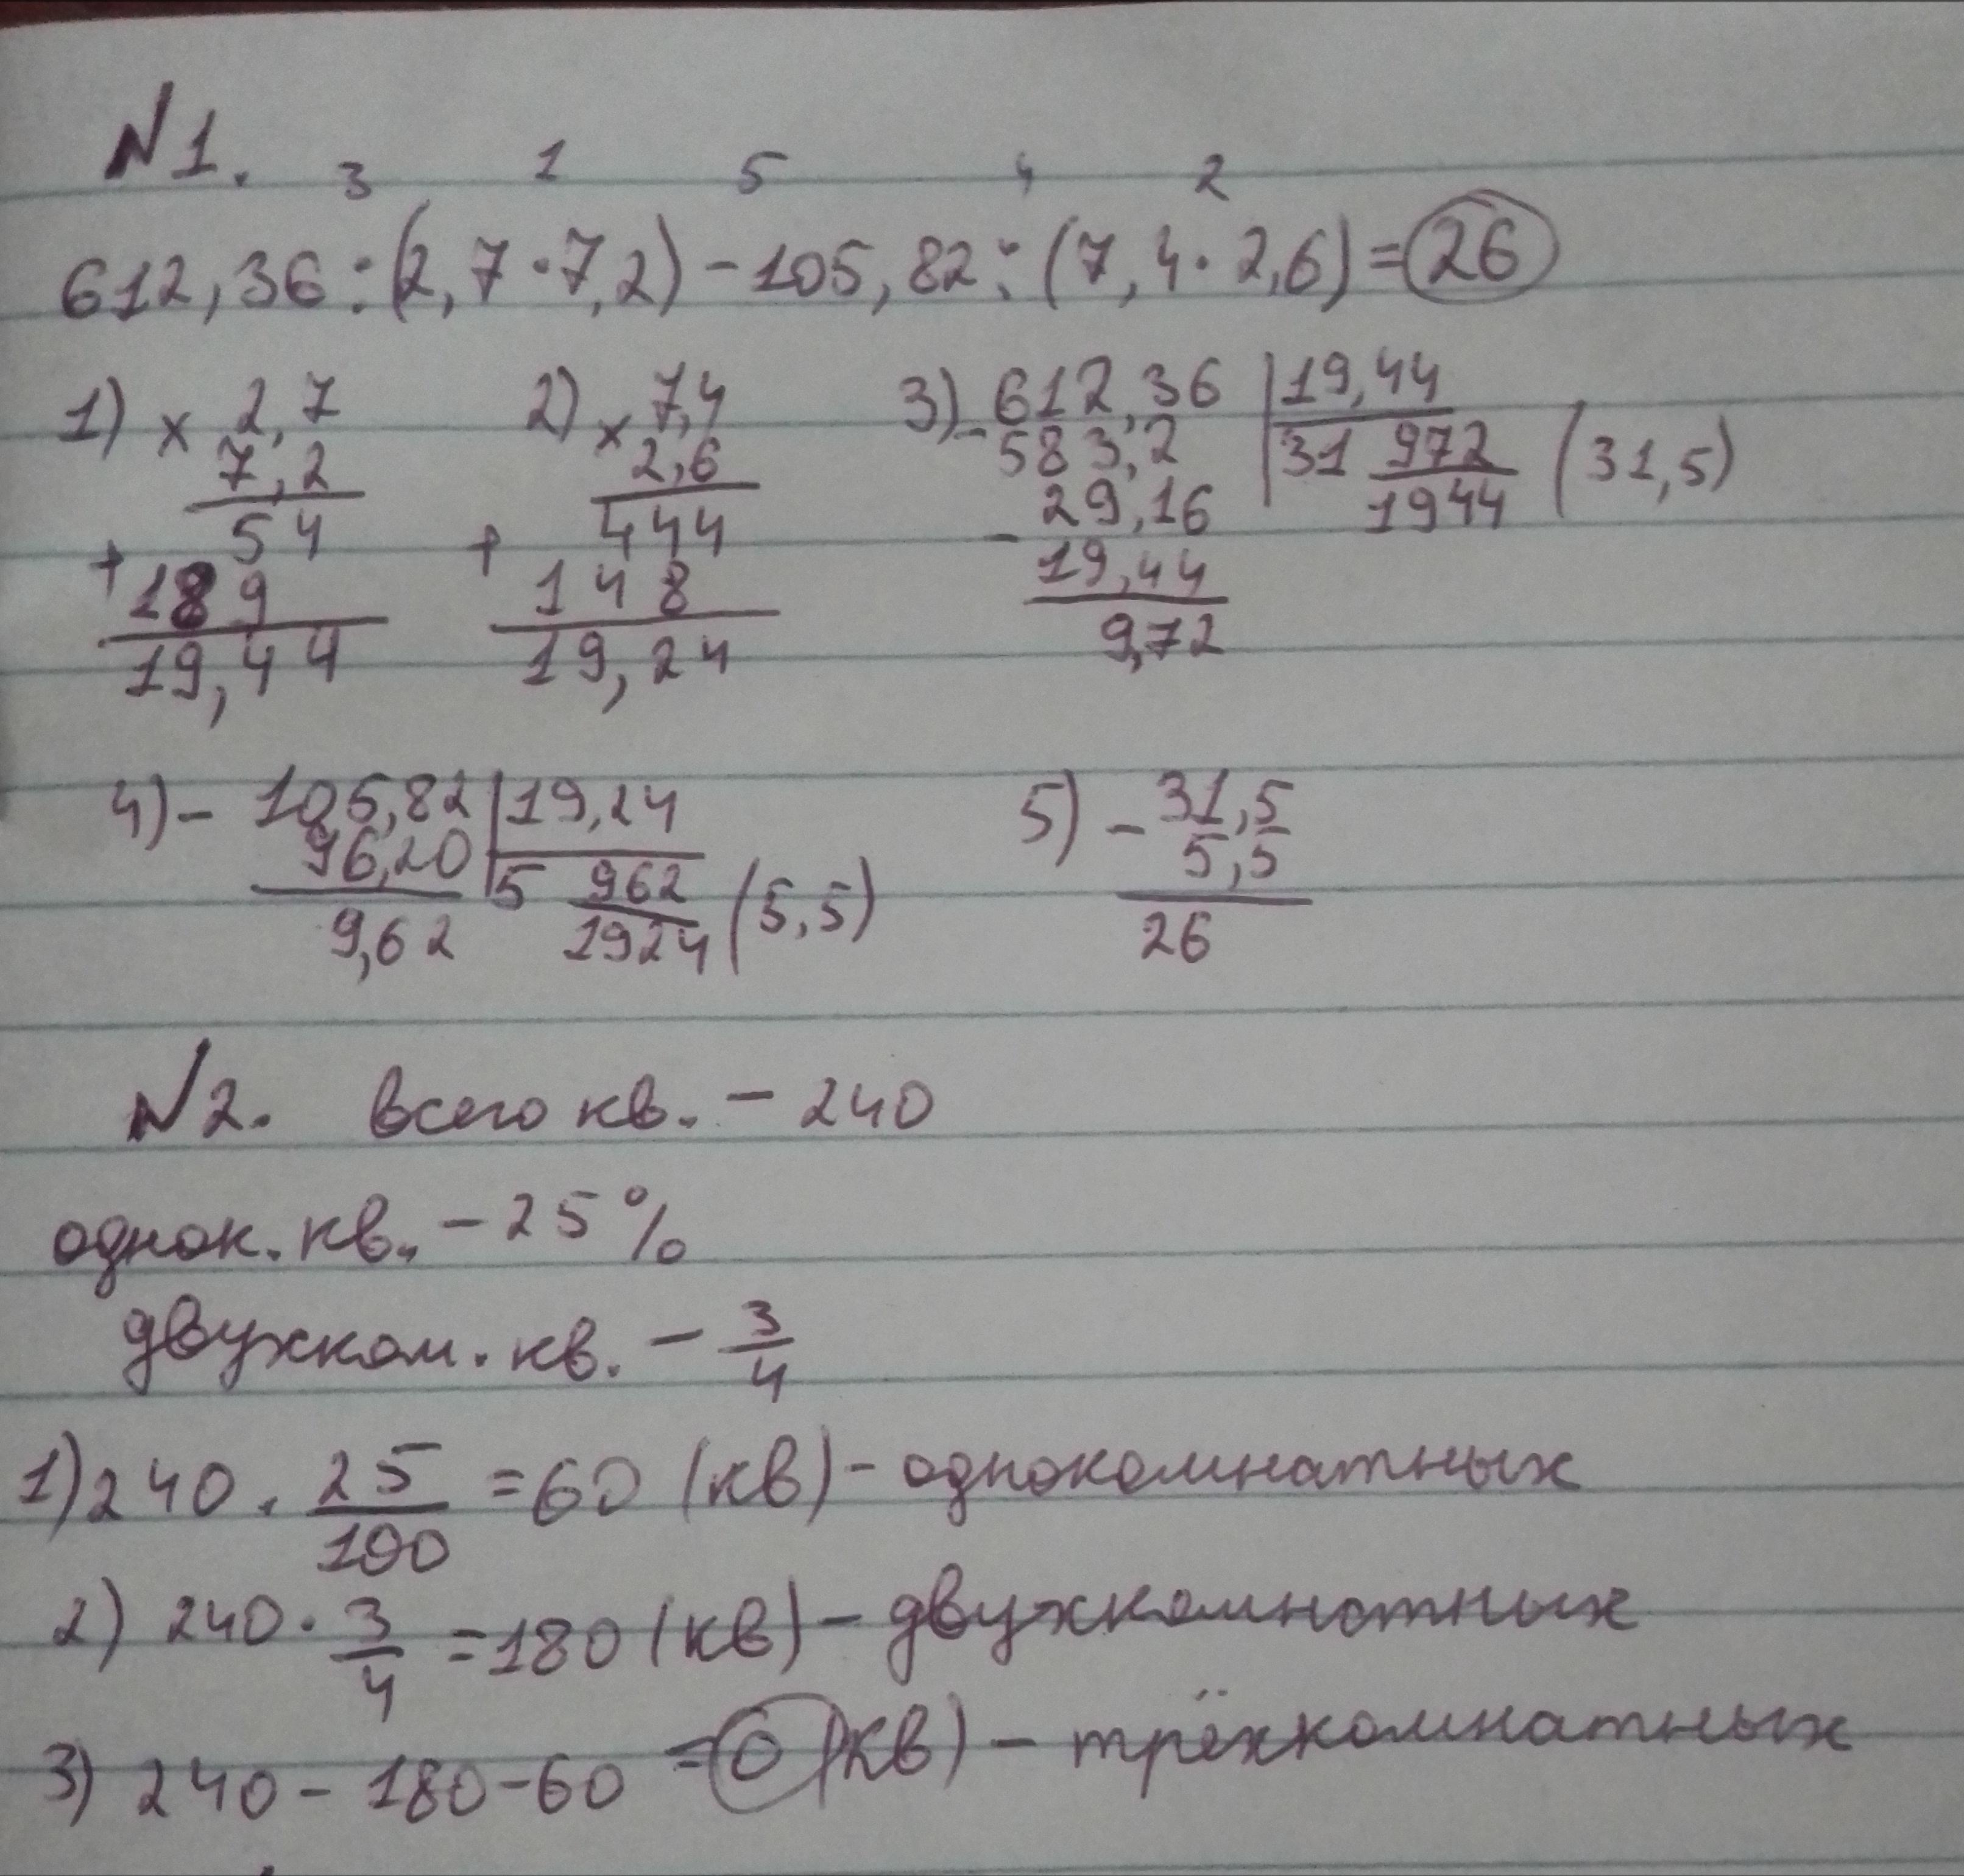 N1.
3 1 5 4 2
612,36:(2,7·7,2)-105,82:(7,4·2,6)=26
1) × 2,7
7,2
54
+ 189
19,44
2) × 7,4
2,6
444
+ 148
19,24
3) - 612,36 | 19,44
583,2 | 31 972/1944 (31,5)
29,16
- 19,44
9,72
4) - 105,82 | 19,24
96,20 | 5 962/1924 (5,5)
9,62
5) - 31,5
5,5
26
N2. всего кв. - 240
однок. кв. - 25%
двухком. кв. - 3/4
1) 240 · 25/100 = 60 (кв) - однокомнатных
2) 240 · 3/4 = 180 (кв) - двухкомнатных
3) 240 - 180 - 60 = 0 (кв) - трёхкомнатных